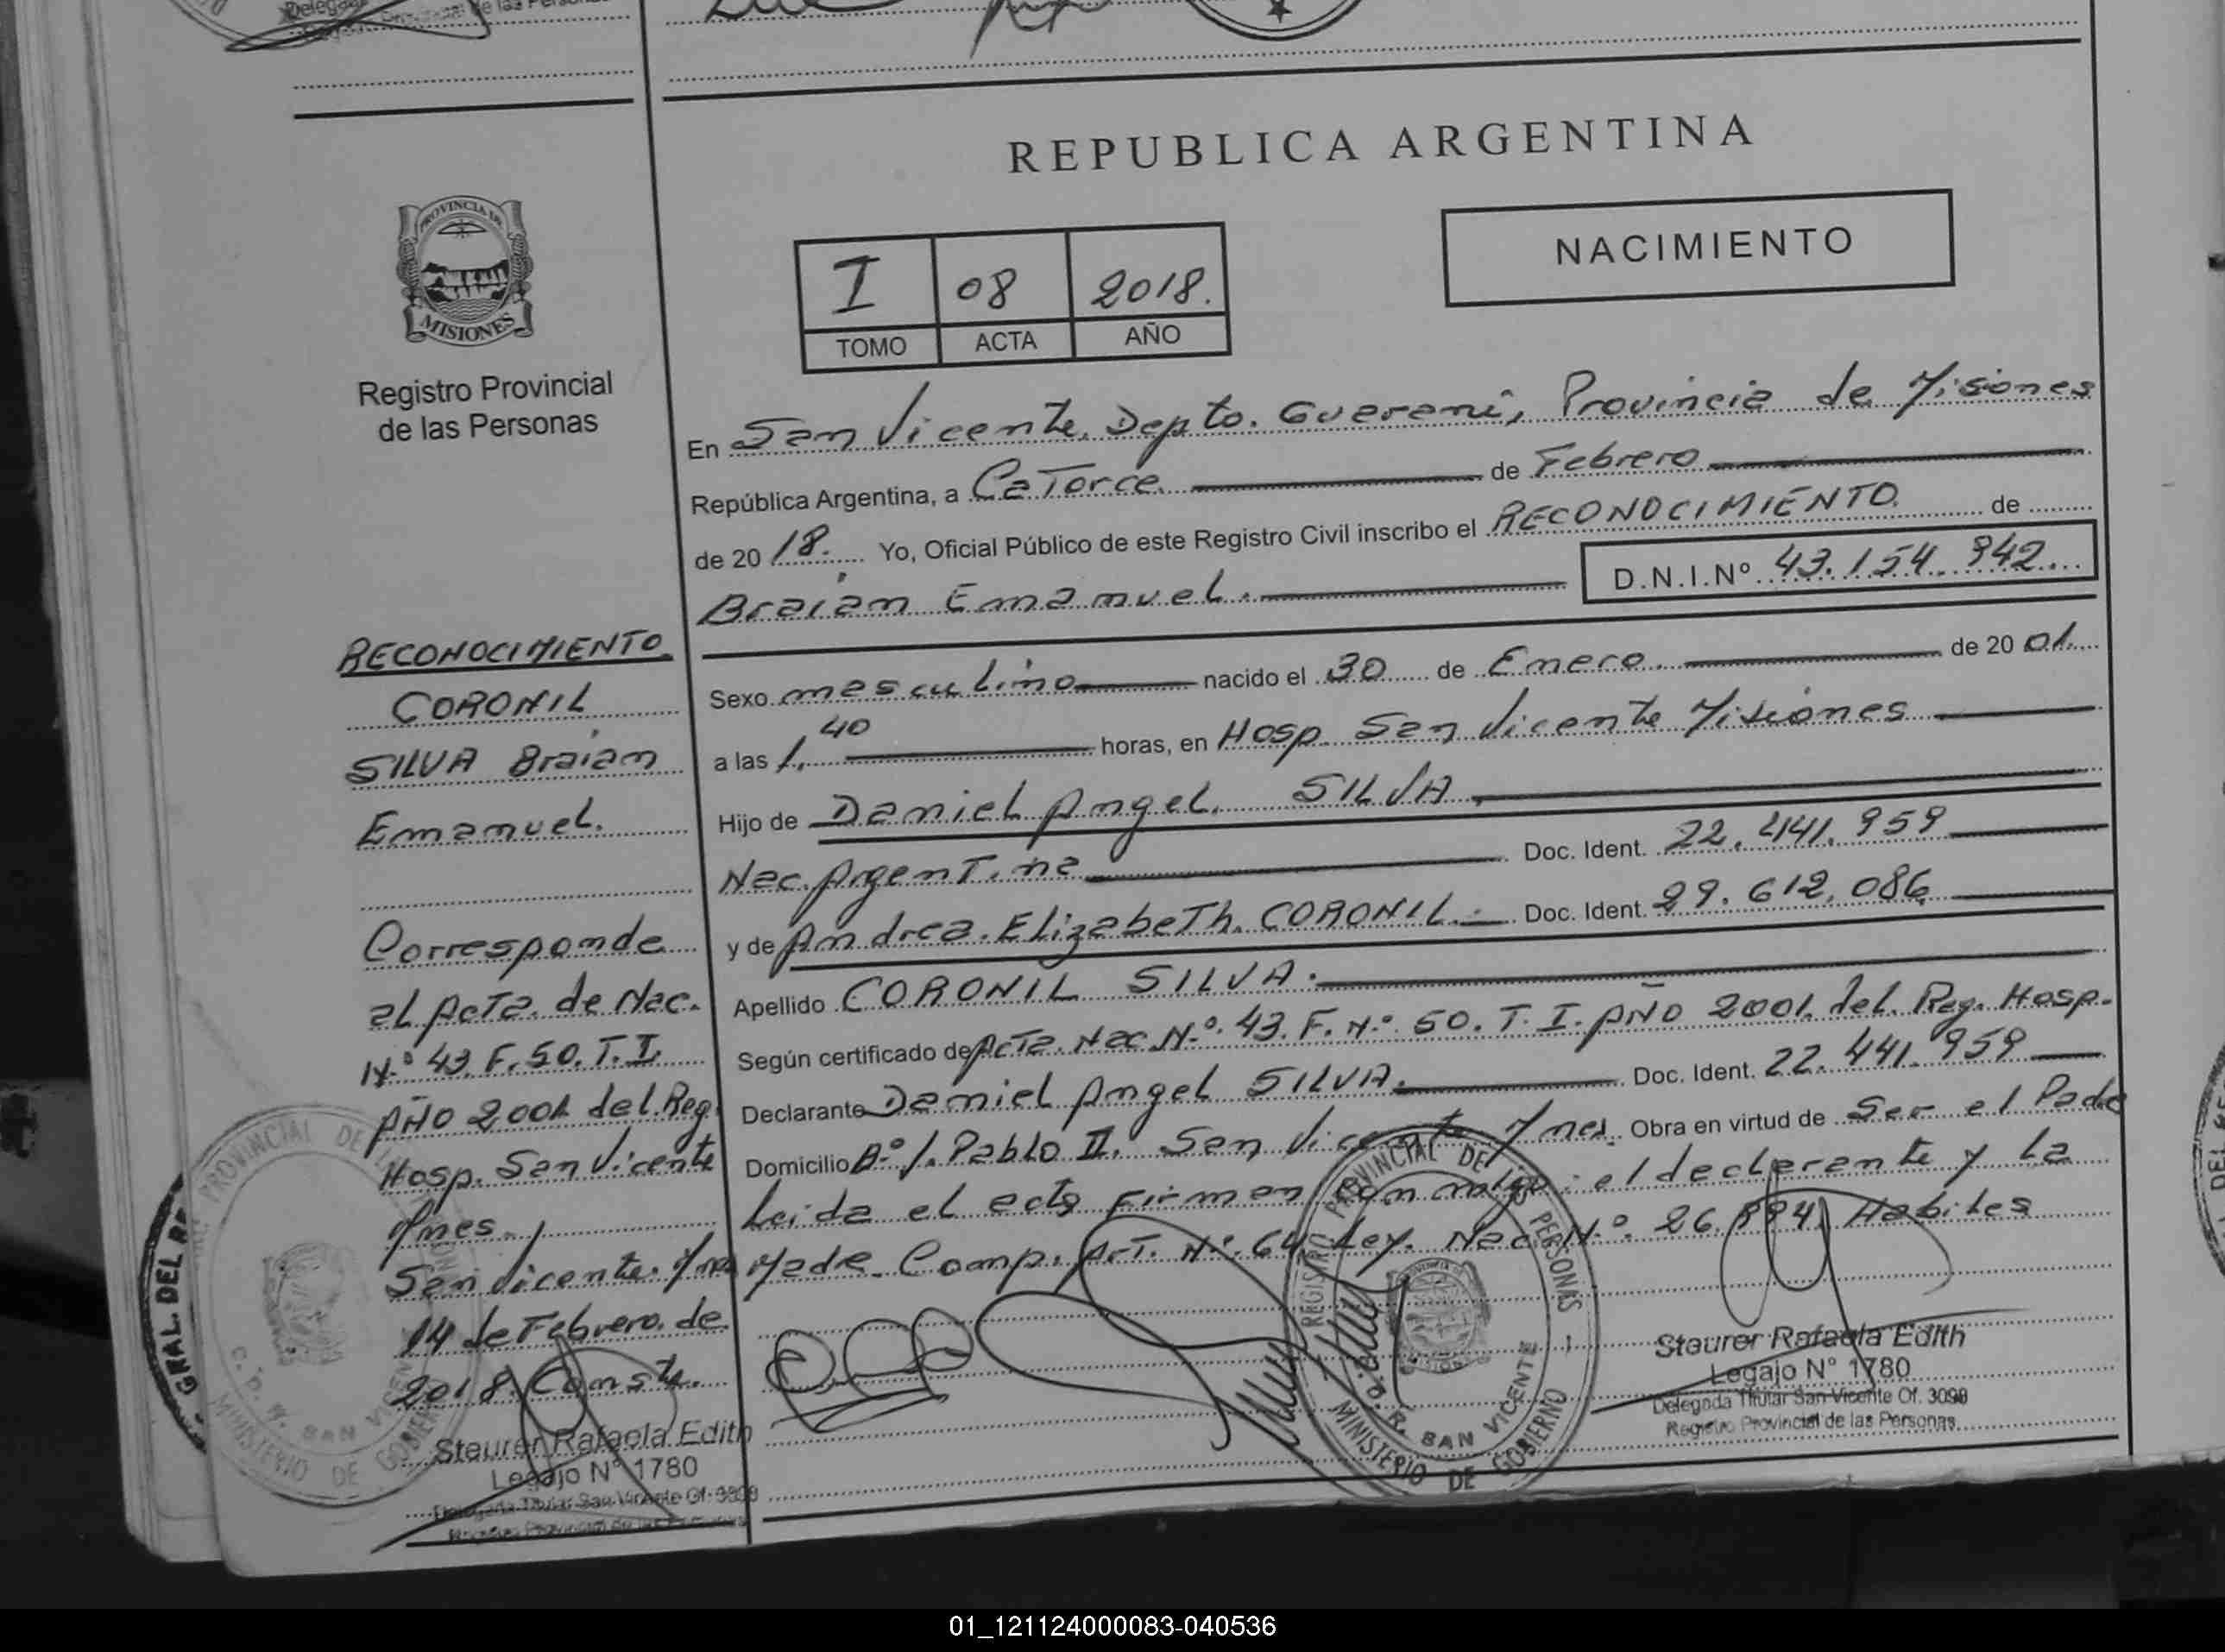 REPUBLICA ARGENTINA
PROVINCIA DE
MISIONES
Registro Provincial
de las Personas
I 08 2018.
TOMO ACTA AÑO
NACIMIENTO
En San Vicente, Depto. Guarani, Provincia de Misiones
República Argentina, a Catorce de Febrero
de 20 18. Yo, Oficial Público de este Registro Civil inscribo el RECONOCIMIENTO de
Braian Emanuel. D.N.I.Nº 43.154.942
Sexo masculino nacido el 30 de Enero. de 20 01.
a las 1,40 horas, en Hosp. San Vicente Misiones
Hijo de Daniel Angel. SILVA
Nac. Argentina Doc. Ident. 22.441.959
y de Andrea Elizabeth. CORONIL. Doc. Ident. 29.612.086
Apellido CORONIL SILVA.
Según certificado de Acta. Nac. Nº 43. F. Nº 50. T. I. AÑO 2001. del. Reg. Hosp.
Declarante Daniel Angel SILVA. Doc. Ident. 22.441.959
Domicilio Bº J. Pablo II. San Vicente Mnes. Obra en virtud de Ser el Padre
Leida el acta Firman conmigo: el declarante y La
Madre. Comp. Art. Nº 64 Ley. Nac. Nº 26.994 Habiles
RECONOCIMIENTO
CORONIL
SILVA Braian
Emanuel.
Corresponde
al Acta. de Nac.
Nº 43. F. 50. T. I.
AÑO 2001 del. Reg.
Hosp. San Vicente
Mnes.
San Vicente. Mnes
14 de Febrero. de
2018. Conste.
Steurer Rafaela Edith
Legajo N° 1780
Delegada Titular San Vicente Of. 3098
Registro Provincial de las Personas
REGISTRO PROVINCIAL DE LAS PERSONAS
SAN VICENTE
MINISTERIO DE GOBIERNO
Steurer Rafaela Edith
Legajo N° 1780
Delegada Titular San Vicente Of. 3098
Registro Provincial de las Personas
GRAL. DEL
01_121124000083-040536